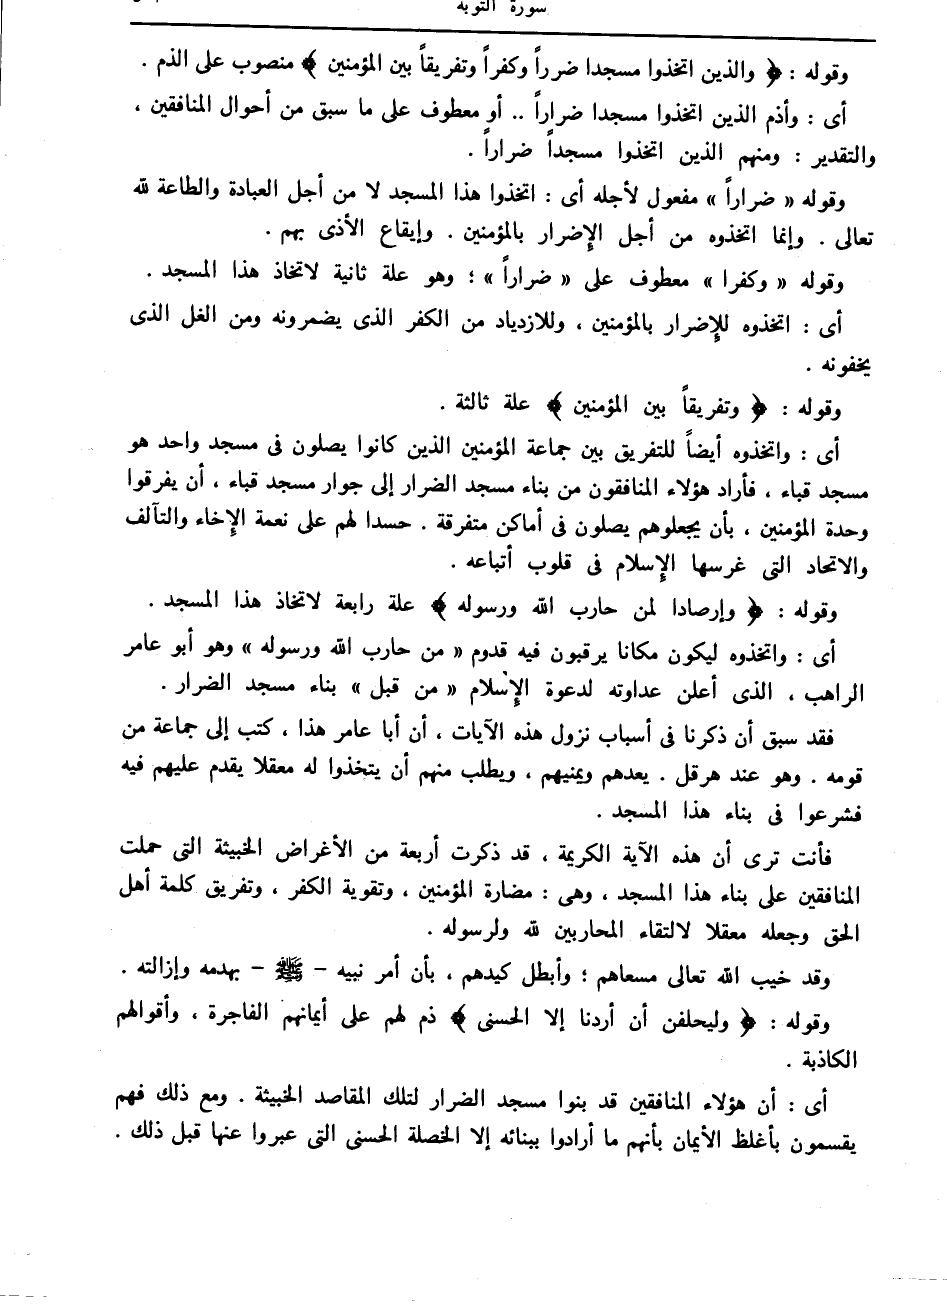 سورة التوبة
وقوله : ﴿ والذين اتخذوا مسجدا ضرراً وكفراً وتفريقاً بين المؤمنين ﴾ منصوب على الذم .
أى : وأذم الذين اتخذوا مسجدا ضراراً .. أو معطوف على ما سبق من أحوال المنافقين ،
والتقدير : ومنهم الذين اتخذوا مسجداً ضراراً .
وقوله « ضراراً » مفعول لأجله أى : اتخذوا هذا المسجد لا من أجل العبادة والطاعة لله
تعالى . وإنما اتخذوه من أجل الإضرار بالمؤمنين . وإيقاع الأذى بهم .
وقوله « وكفرا » معطوف على « ضراراً » ؛ وهو علة ثانية لاتخاذ هذا المسجد .
أى : اتخذوه للإضرار بالمؤمنين ، وللازدياد من الكفر الذى يضمرونه ومن الغل الذى
يخفونه .
وقوله : ﴿ وتفريقاً بين المؤمنين ﴾ علة ثالثة .
أى : واتخذوه أيضاً للتفريق بين جماعة المؤمنين الذين كانوا يصلون فى مسجد واحد هو
مسجد قباء ، فأراد هؤلاء المنافقون من بناء مسجد الضرار إلى جوار مسجد قباء ، أن يفرقوا
وحدة المؤمنين ، بأن يجعلوهم يصلون فى أماكن متفرقة . حسدا لهم على نعمة الإخاء والتآلف
والاتحاد التى غرسها الإسلام فى قلوب أتباعه .
وقوله : ﴿ وإرصادا لمن حارب الله ورسوله ﴾ علة رابعة لاتخاذ هذا المسجد .
أى : واتخذوه ليكون مكانا يرقبون فيه قدوم « من حارب الله ورسوله » وهو أبو عامر
الراهب ، الذى أعلن عداوته لدعوة الإسلام « من قبل » بناء مسجد الضرار .
فقد سبق أن ذكرنا فى أسباب نزول هذه الآيات ، أن أبا عامر هذا ، كتب إلى جماعة من
قومه . وهو عند هرقل . يعدهم ويمنيهم ، ويطلب منهم أن يتخذوا له معقلا يقدم عليهم فيه
فشرعوا فى بناء هذا المسجد .
فأنت ترى أن هذه الآية الكريمة ، قد ذكرت أربعة من الأغراض الخبيثة التى حملت
المنافقين على بناء هذا المسجد ، وهى : مضارة المؤمنين ، وتقوية الكفر ، وتفريق كلمة أهل
الحق وجعله معقلا لالتقاء المحاربين لله ولرسوله .
وقد خيب الله تعالى مسعاهم ؛ وأبطل كيدهم ، بأن أمر نبيه - ﷺ - بهدمه وإزالته .
وقوله : ﴿ وليحلفن أن أردنا إلا الحسنى ﴾ ذم لهم على أيمانهم الفاجرة ، وأقوالهم
الكاذبة .
أى : أن هؤلاء المنافقين قد بنوا مسجد الضرار لتلك المقاصد الخبيثة . ومع ذلك فهم
يقسمون بأغلظ الأيمان بأنهم ما أرادوا ببنائه إلا الخصلة الحسنى التى عبروا عنها قبل ذلك .